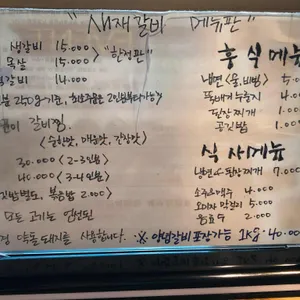 "새재갈비 메뉴판"
생갈비 15.000
목살 15.000
갈비 14.000
"한정판"
250g기준, 최소주문은 2인분부터가능
갈비찜
(순한맛, 매운맛, 간장맛)
30.000 (2-3인분)
40.000 (3-4인분)
별도, 볶음밥 2.000
모든 고기는 엄선된
돼지를 사용합니다.
후식메뉴
냉면(물,비빔) 5.0
뚝배기누룽지 4.0
된장찌개 1.00
공깃밥 1.0
식사메뉴
냉면, 된장찌개 7.00
소주&맥주 4.000
오미자 막걸리 5.000
음료수 2.000
※ 양념갈비 포장가능 1KG 40.00